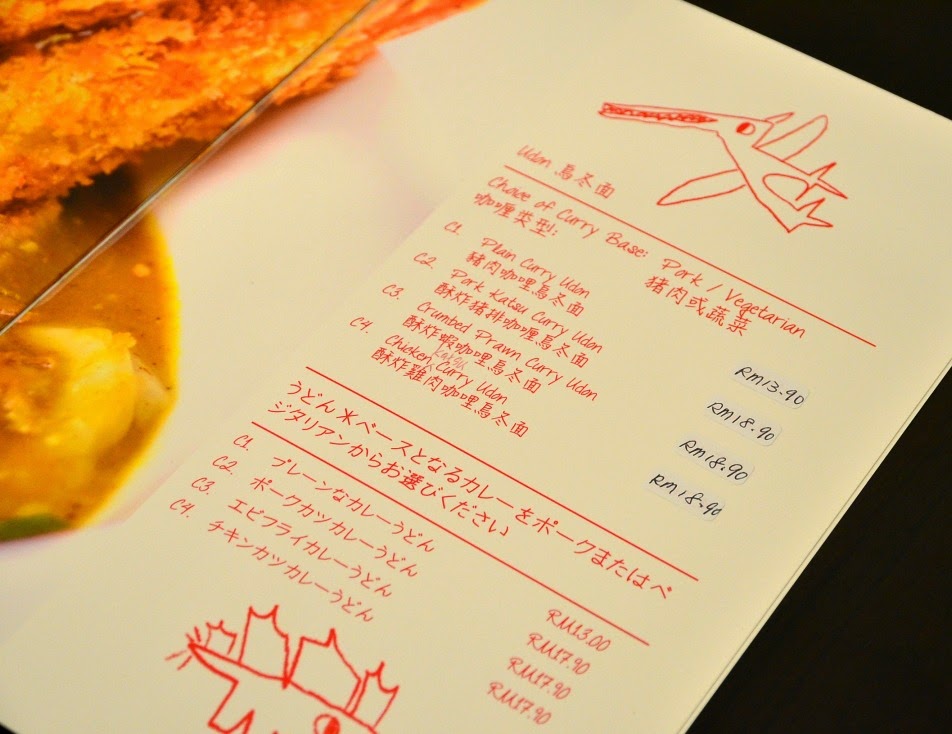 Udon 烏冬面
Choice of Curry Base: Pork / Vegetarian
咖喱类型: 猪肉或蔬菜
C1. Plain Curry Udon RM13.90
豬肉咖哩烏冬面
C2. Pork Katsu Curry Udon RM18.90
酥炸豬排咖喱烏冬面
C3. Crumbed Prawn Curry Udon RM18.90
酥炸蝦咖哩烏冬面
C4. Chicken Katsu Curry Udon RM18.90
酥炸雞肉咖哩烏冬面
うどん*ベースとなるカレーをポークまたはベ
ジタリアンからお選びください
C1. プレーンなカレーうどん RM13.00
C2. ポークカツカレーうどん RM17.90
C3. エビフライカレーうどん RM17.90
C4. チキンカツカレーうどん RM17.90